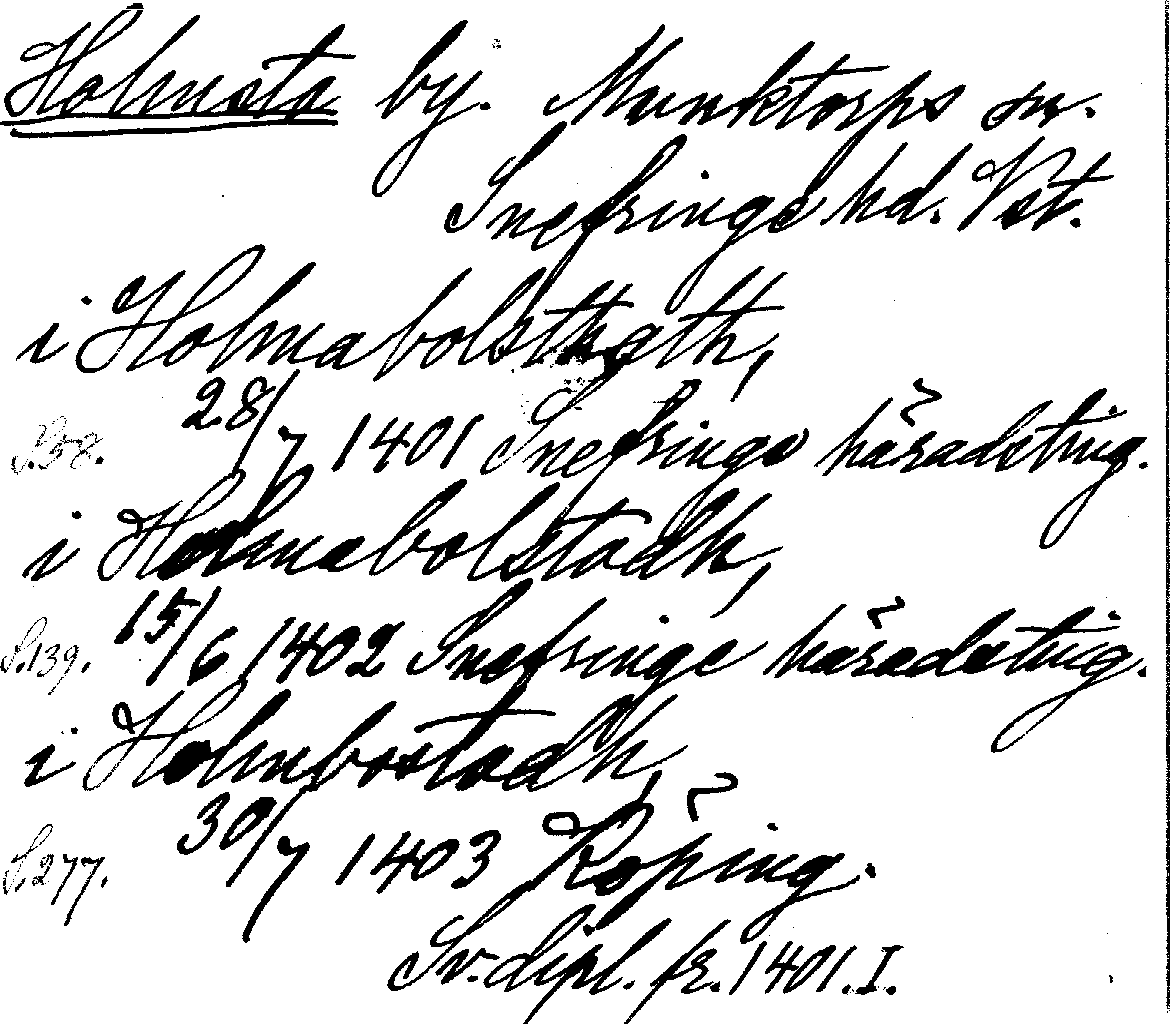 Holmsta by. Munktorps sn.
Snefringe hd. Vst.
i Holmabolsthath,
S.58. 28/7 1401 Snefringe häradsting.
i Holmabolstadh,
S.139. 15/6 1402 Snefringe häradsting.
i Holmbostadh,
S.277. 30/7 1403 Köping.
Sv. dipl. fr. 1401. I.